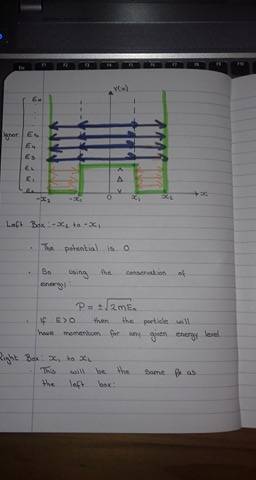 V(x)
En
E6
E5
E4
E3
E2
E1
E0
Ignor
-x2 -x1 0 x1 x2 x
Left Box: -x2 to -x1
· The potential is 0
· So using the conservation of
energy:
P = ±√2mEn
· If E>0 then the particle will
have momentum for any given energy level
Right Box: x1 to x2
· This will be the same as
the left box: